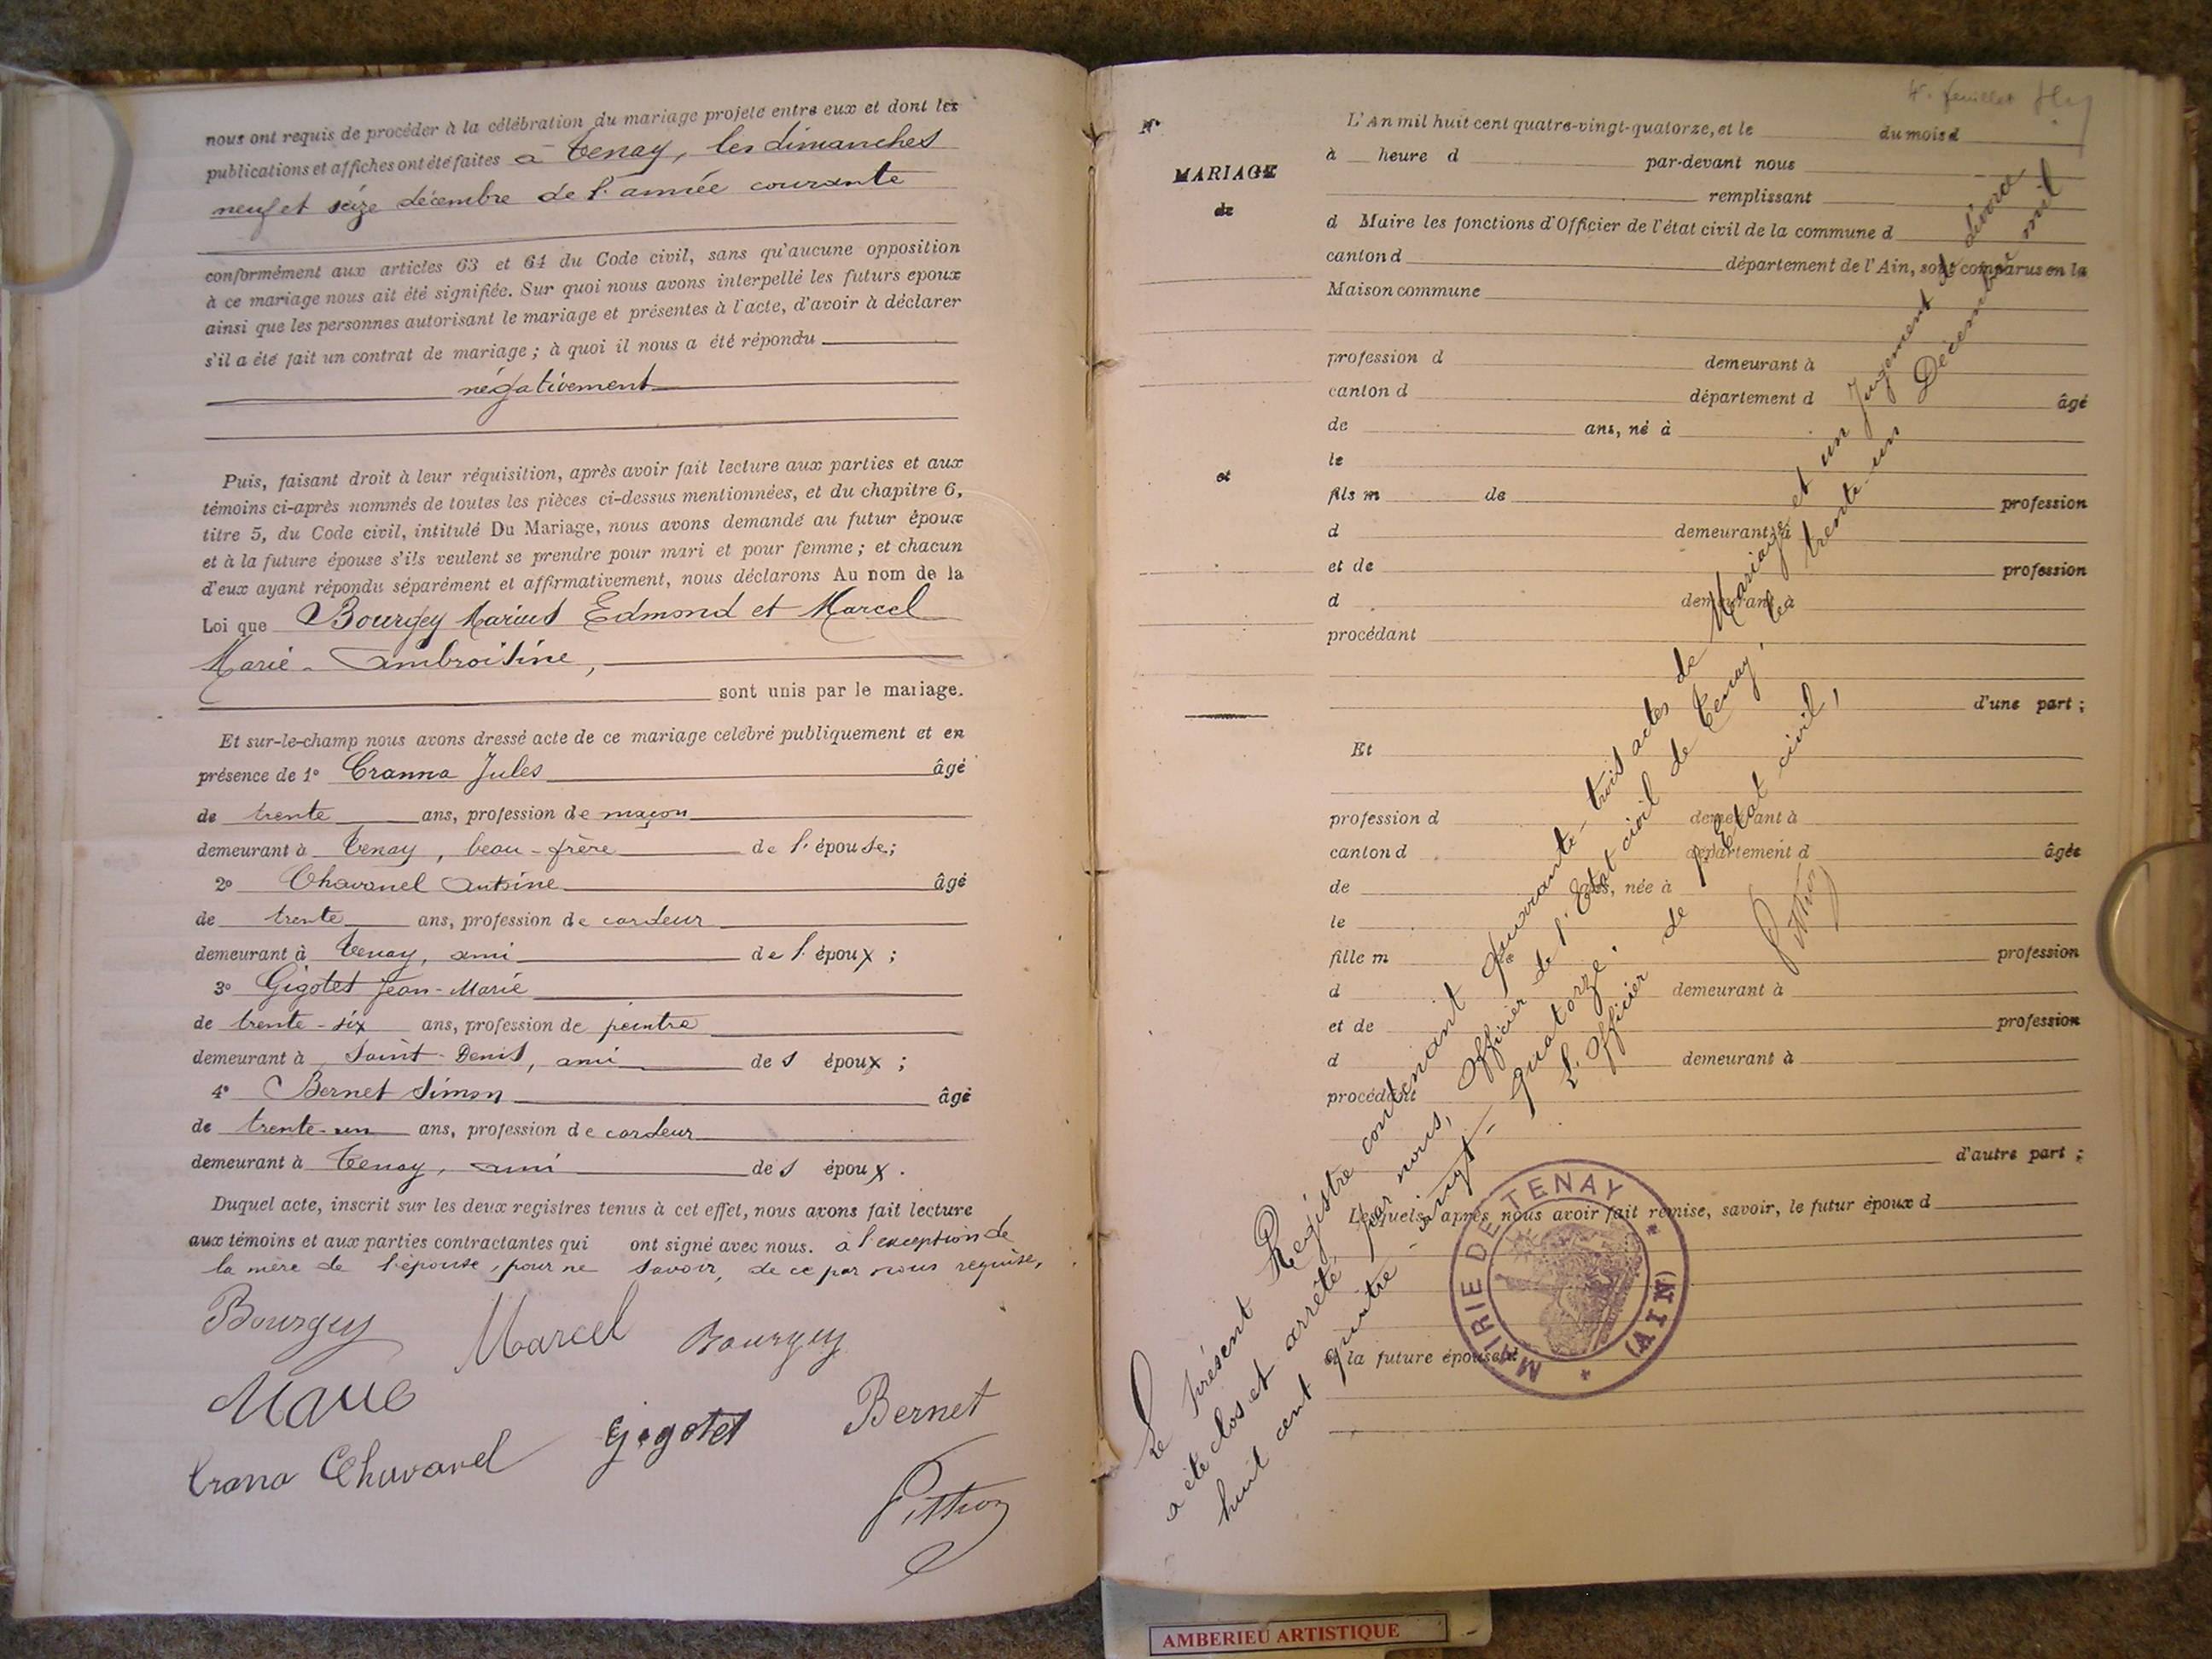 nous ont requis de procéder à la célébration du mariage projeté entre eux et dont les
publications et affiches ont été faites à Tenay, les dimanches
neuf et seize décembre de l'année courante
conformément aux articles 63 et 64 du Code civil, sans qu'aucune opposition
à ce mariage nous ait été signifiée. Sur quoi nous avons interpellé les futurs epoux
ainsi que les personnes autorisant le mariage et présentes à l'acte, d'avoir à déclarer
s'il a été fait un contrat de mariage ; à quoi il nous a été répondu
négativement
Puis, faisant droit à leur réquisition, après avoir fait lecture aux parties et aux
témoins ci-après nommés de toutes les pièces ci-dessus mentionnées, et du chapitre 6,
titre 5, du Code civil, intitulé Du Mariage, nous avons demandé au futur époux
et à la future épouse s'ils veulent se prendre pour mari et pour femme ; et chacun
d'eux ayant répondu séparément et affirmativement, nous déclarons Au nom de la
Loi que Bourgey Marius Edmond et Marcel
Marie-Ambroisine,
sont unis par le mariage.
Et sur-le-champ nous avons dressé acte de ce mariage celébré publiquement et en
présence de 1° Cranna Jules âgé
de trente ans, profession de maçon
demeurant à Tenay, beau-frère de l'épouse;
2° Chavanel Antoine âgé
de trente ans, profession de cardeur
demeurant à Tenay, ami de l'époux ;
3° Gigotet Jean-Marie
de trente-six ans, profession de peintre
demeurant à Saint-Denis, ami des époux ;
4° Bernet Simon âgé
de trente-un ans, profession de cardeur
demeurant à Tenay, ami des époux.
Duquel acte, inscrit sur les deux registres tenus à cet effet, nous avons fait lecture
aux témoins et aux parties contractantes qui ont signé avec nous. à l'exception de
la mère de l'épouse, pour ne savoir, de ce par nous requise,
Bourgey Marcel Bourgey
Marie
Gigotet Bernet
Crana Chavanel
Pittion
4e feuillet
N°
MARIAGE
de
et
L'An mil huit cent quatre-vingt-quatorze, et le du mois d
à heure d par-devant nous
remplissant
d Maire les fonctions d'Officier de l'état civil de la commune d
canton d département de l'Ain, sont comparus en la
Maison commune
profession d demeurant à
canton d département d âgé
de ans, né à
le
fils m de profession
d demeurant à
et de profession
d demeurant à
procédant
d'une part ;
Et
profession d demeurant à
canton d département d âgée
de ans, née à
le
fille m de profession
d demeurant à
et de profession
d demeurant à
procédant
d'autre part ;
Lesquels, après nous avoir fait remise, savoir, le futur époux d
et la future épouse d
Le présent Registre contenant quarante-trois actes de Mariage et un Jugement de divorce
a été clos et arrêté par nous, Officier de l'Etat civil de Tenay, le trente-un Décembre mil
huit cent quatre-vingt-quatorze.
L'Officier de l'Etat civil,
Pittion
MAIRIE DE TENAY
(AIN)
AMBERIEU ARTISTIQUE